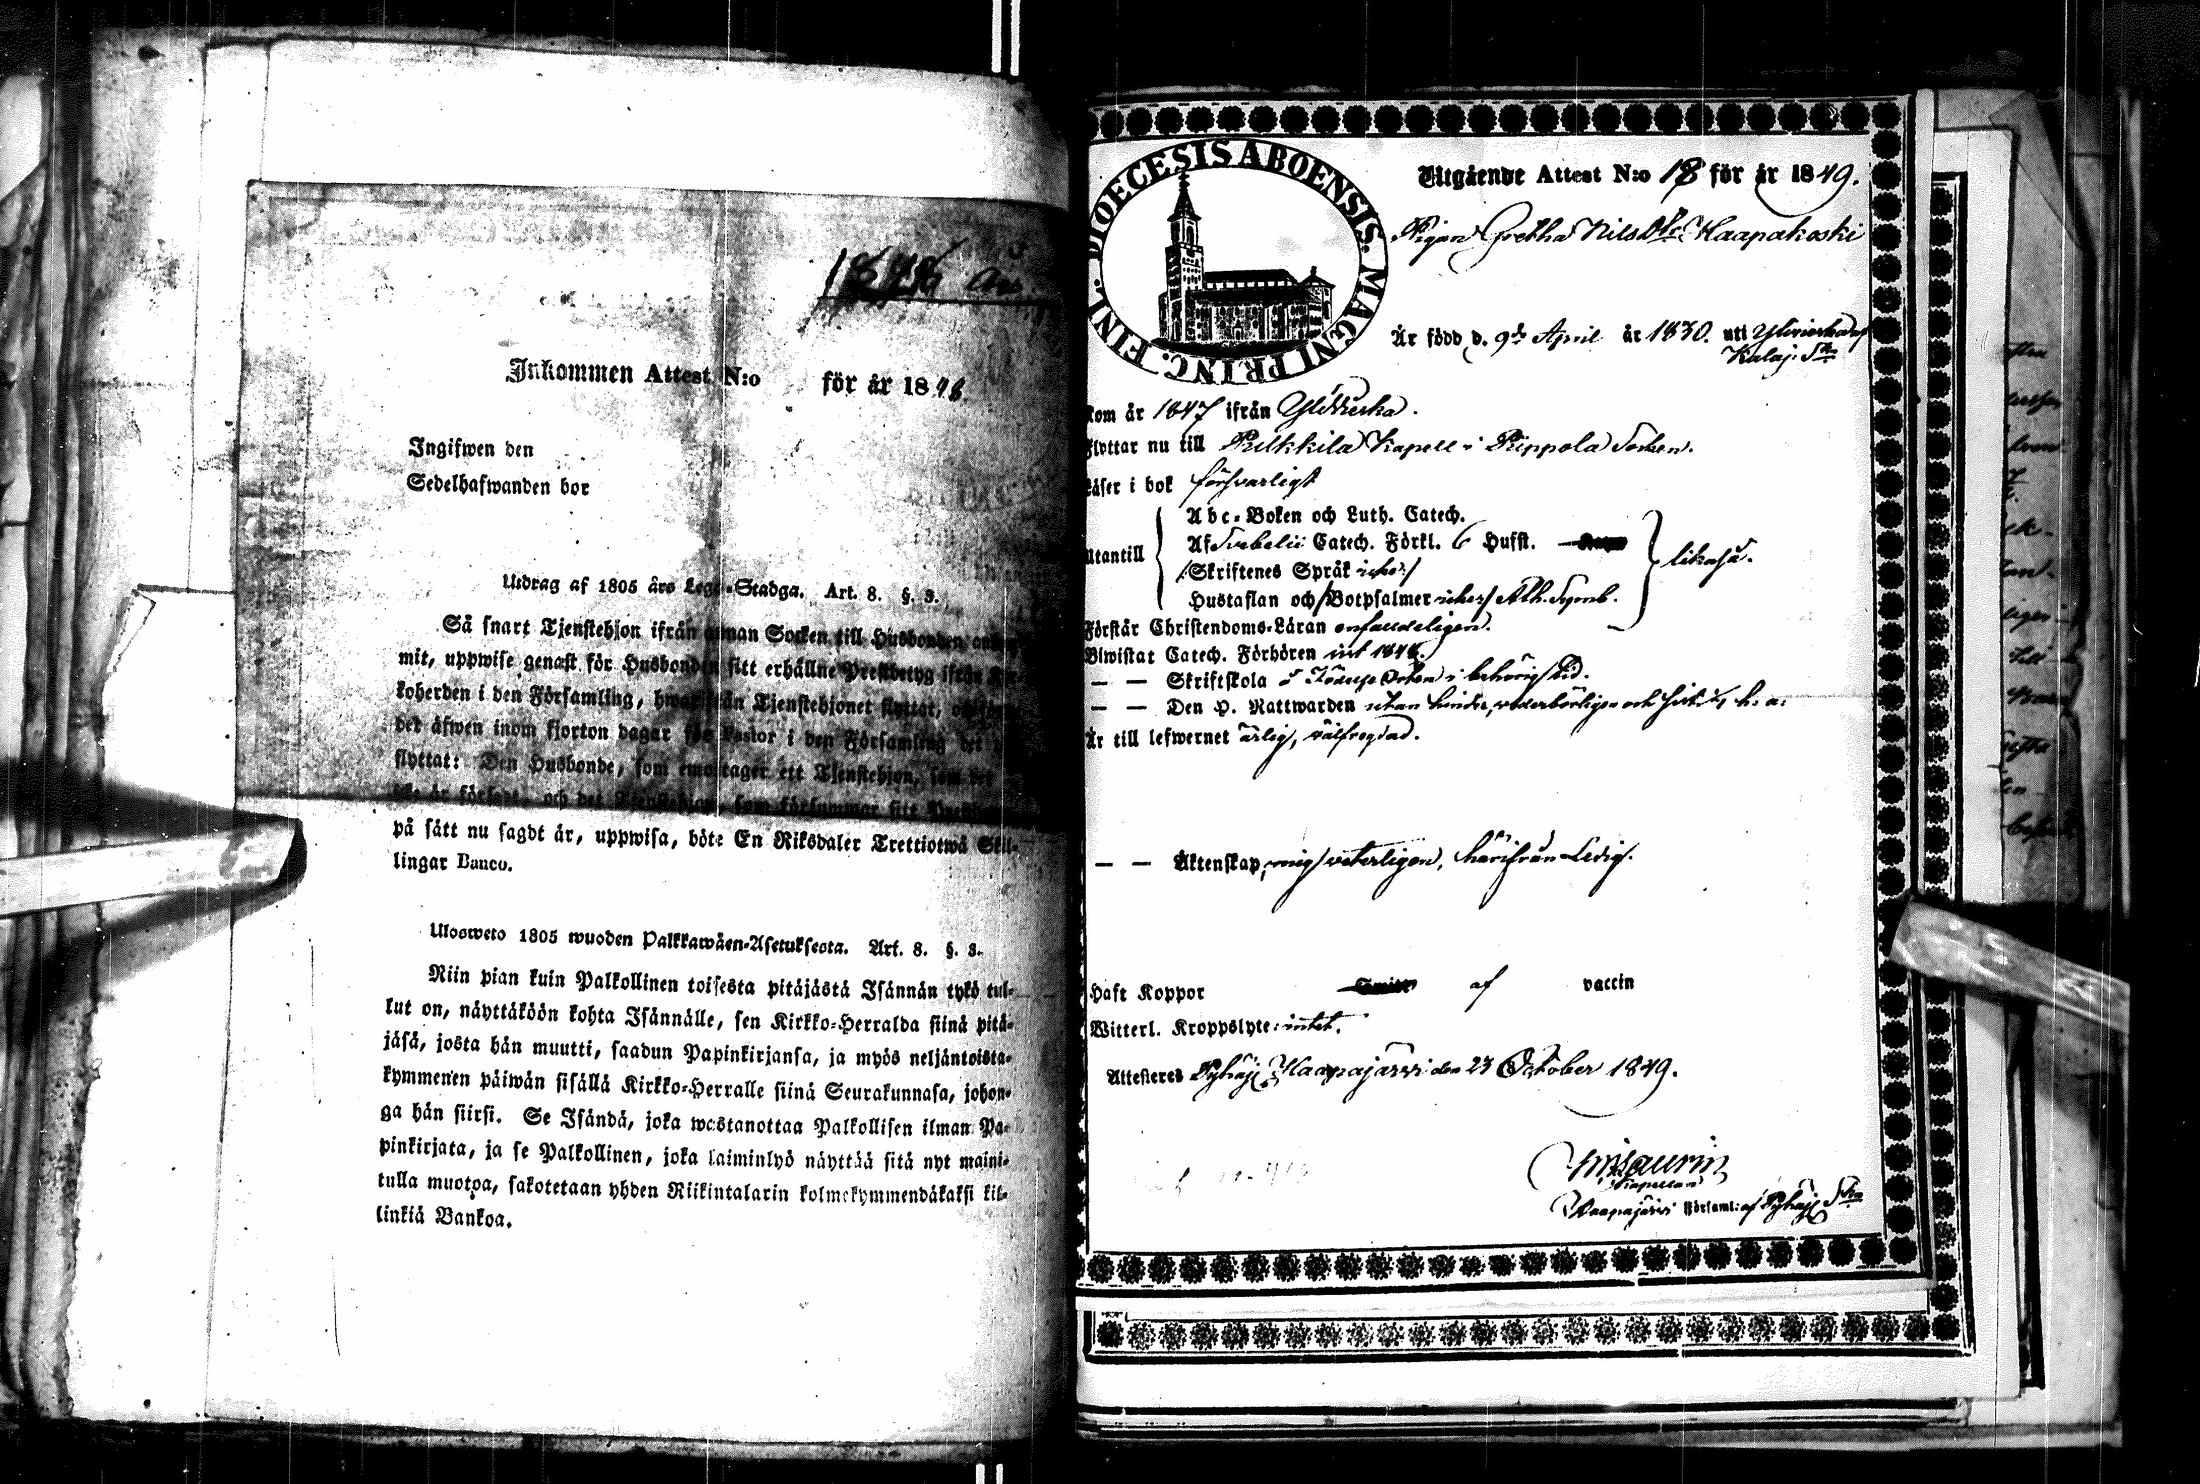 1848
Inkommen Attest N:o för år 1848
Ingifwen den
Sedelhafwanden bor
Utdrag af 1805 års Lego-Stadga. Art. 8. §. 3.
Så snart Tjenstehjon ifrån annan Socken till Husbonden
mit, uppwise genast för Husbonden sitt erhållne Prestbetyg ifrån
koherden i den Församling, hwarifrån Tjenstehjonet flyttat,
det äfwen inom fjorton dagar för Pastor i den Församling det
flyttat: Den Husbonde, som emottager ett Tjenstehjon, som det
är försedt, och det Tjenstehjon, som försummar sitt
på sätt nu sagdt är, uppwisa, böte En Riksdaler Trettiotwå Skil-
lingar Banco.
Ulosweto 1805 wuoden Palkkawäen-Asetuksesta. Art. 8. §. 3.
Niin pian kuin Palkollinen toisesta pitäjästä Isännän tykö tul-
lut on, näyttäköön kohta Isännälle, sen Kirkko-Herralda siinä pitä-
jäsä, josta hän muutti, saadun Papinkirjansa, ja myös neljäntoista-
kymmenen päiwän sisällä Kirkko-Herralle siinä Seurakunnasa, johon-
ga hän siirsi. Se Isändä, joka wastanottaa Palkollisen ilman Pa-
pinkirjata, ja se Palkollinen, joka laiminlyö näyttää sitä nyt maini-
tulla muotoa, sakotetaan yhden Riikintalarin kolmekymmendäkaksi kil-
linkiä Bankoa.
DIOECESIS ABOENSIS. MAGNI PRINC. FINL.
Utgående Attest N:o 18 för år 1849.
Pigan Gretha Nilsdtr Haapakoski
Är född d. 9de April år 1830. uti Ylivieska af
Kalaj. Skn
Kom år 1847 ifrån Ylivieska.
Flyttar nu till Pulkkila Kapell i Piippola Socken.
Läser i bok försvarligt
Abc-Boken och Luth. Catech.
Utantill Af Svebelii Catech. Förkl. 6 Hufst. likaså.
/Skriftenes Språk icke/
Hustaflan och /Botpsalmer icke/ Ath. Symb.
Förstår Christendoms-Läran enfaldeligen.
Biwistat Catech. Förhören int 1848.
— — Skriftskola i behörig tid.
— — Den H. Nattwarden utan hinder, wederbörligen och sist
Är till lefwernet ärlig, välfregdad.
— — Äktenskap, mig veterligen, härifrån Ledig.
Haft Koppor af vaccin
Witterl. Kroppslyte: intet.
Attesteres Pyhäj. Haapajärvi den 23 October 1849.
Kapellan
Haapajärvi Församl: af Pyhäj. Skn